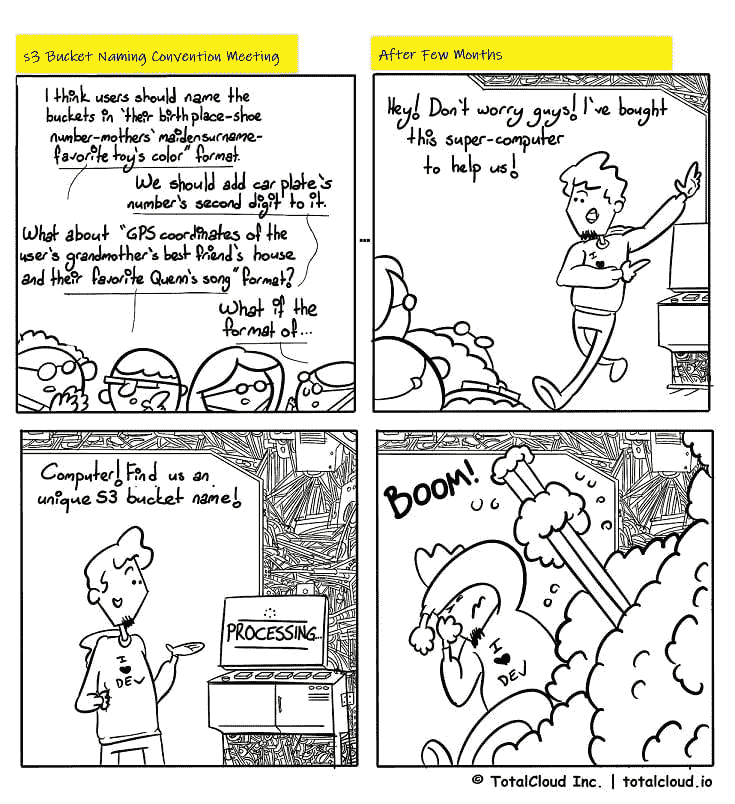 s3 Bucket Naming Convention Meeting
I think users should name the
buckets in 'their birthplace-shoe
number-mothers' maidensurname-
favorite toy's color" format.
We should add car plate's
number's second digit to it.
What about "GPS coordinates of the
user's grandmother's best friend's house
and their favorite Quenn's song" format?
What if the
format of...
...
After Few Months
Hey! Don't worry guys! I've bought
this super-computer
to help us!
I ♥
Computer! Find us an
unique S3 bucket name!
I
♥
DEV
PROCESSING...
BOOM!
I
♥
DEV
© TotalCloud Inc. | totalcloud.io